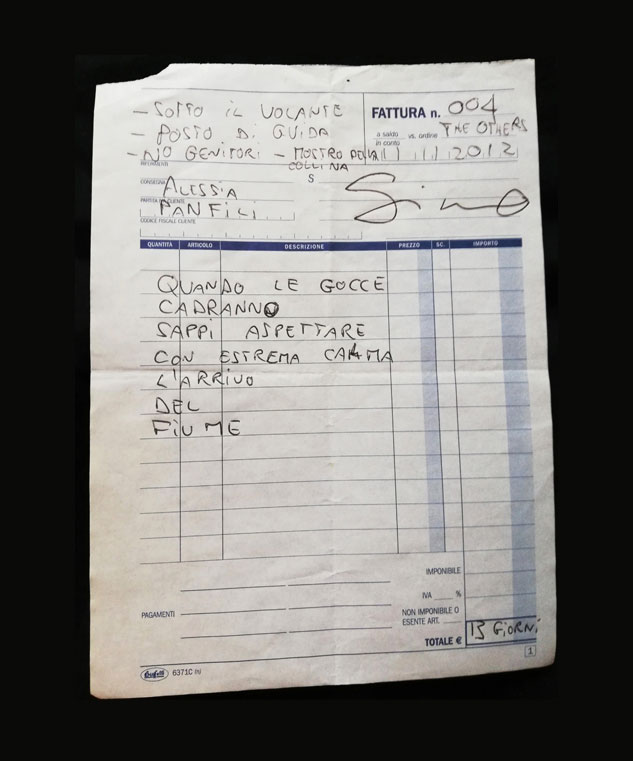 - SOTTO IL VOLANTE
- POSTO DI GUIDA
- NO GENITORI - MOSTRO DELLA COLLINA
FATTURA n. 004
a saldo vs. ordine THE OTHERS
in conto
2012
RIFERIMENTI
S
CONSEGNA
ALESSIA
PARTITA IVA CLIENTE
PANFILI
CODICE FISCALE CLIENTE
QUANTITÀ ARTICOLO DESCRIZIONE PREZZO SC. IMPORTO
QUANDO LE GOCCE
CADRANNO
SAPPI ASPETTARE
CON ESTREMA CALMA
L'ARRIVO
DEL
FIUME
IMPONIBILE
IVA %
PAGAMENTI
NON IMPONIBILE O
ESENTE ART.
TOTALE € 13 GIORNI
Buffetti 6371C
1